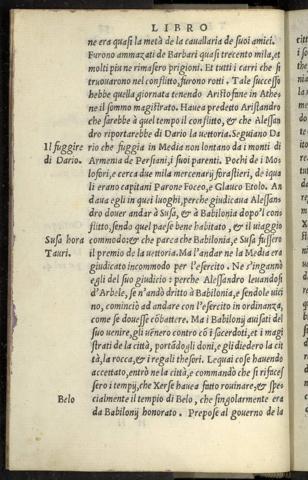 LIBRO
ne era quasi la metà de la cauallaria de suoi amici.
Furono ammezati de Barbari quasi trecento mila, et
molti piu ne rimasero prigioni. Et tutti i carri che si
truouarono nel conflitto, furono rotti. Tale successo
hebbe quella giornata tenendo Aristofane in Athe=
ne il sommo magistrato. Hauea predetto Aristandro
che sarebbe à quel tempo il conflitto, & che Alessan
dro riportarebbe di Dario la uettoria. Seguiano Da
Il fuggire
di Dario.
rio che fuggia in Media non lontano da i monti di
Armenia de Persiani, i suoi parenti. Pochi de i Mo=
lofori, e cerca due mila mercenarij forastieri, de i qua
li erano capitani Parone Foceo, e Glauco Etolo. An
daua egli in quei luoghi, perche giudicaua Alessan=
dro douer andar à Susa, & à Babilonia dopo'l con=
flitto, sendo quel paese bene habitato, & il uiaggio
Susa hora
Tauri.
commodo: & che parea che Babilonia, e Susa fussero
il premio de la uettoria. Ma l'andar ne la Media era
giudicato incommodo per l'esercito. Ne s'ingannò
egli del suo giudicio: perche Alessandro leuandosi
d'Arbele, se n'andò dritto à Babilonia, e sendole uici
no, cominciò ad andare con l'esercito in ordinanza,
come se douesse cõbattere. Ma i Babilonij auisati del
suo uenire, gli uẽnero contro cõ i sacerdoti, et i magi
strati de la città, portãdogli doni, e gli diedero la cit
tà, la rocca, & i regali thesori. Le quai cose hauendo
accettato, entrò ne la città, e commandò che si rifaces
sero i tempij, che Xerse hauea fatto rouinare, & spe=
Belo
cialmente il tempio di Belo, che singolarmente era
da Babilonij honorato. Prepose al gouerno de la